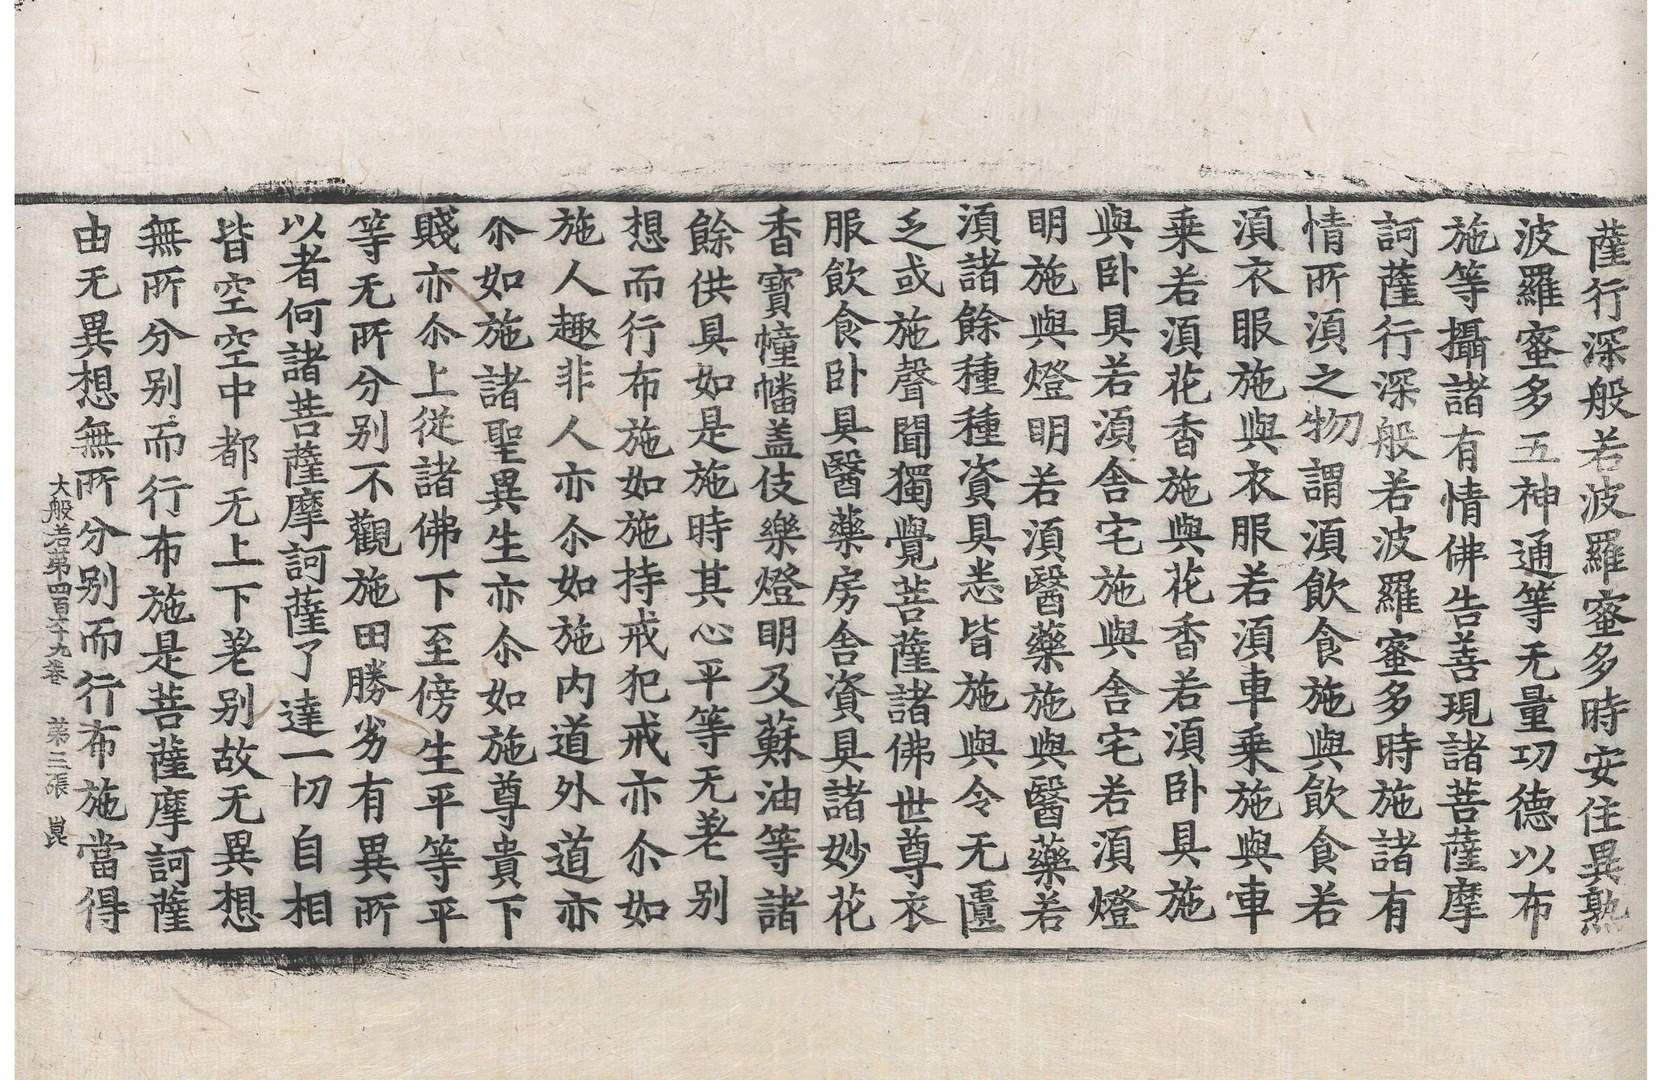 薩行深般若波羅蜜多時安住異熟
波羅蜜多五神通等无量功德以布
施等攝諸有情佛告善現諸菩薩摩
訶薩行深般若波羅蜜多時施諸有
情所湏之物謂湏飲食施與飲食若
湏衣服施與衣服若湏車乗施與車
乗若湏花香施與花香若湏卧具施
與卧具若湏舍宅施與舍宅若湏燈
明施與燈明若湏醫藥施與醫藥若
湏諸餘種種資具悉皆施與令无匱
乏或施聲聞獨覺菩薩諸佛世尊衣
服飲食卧具醫藥房舍資具諸妙花
香寶幢幡盖伎樂燈明及蘇油等諸
餘供具如是施時其心平等无差别
想而行布施如施持戒犯戒亦尒如
施人趣非人亦尒如施内道外道亦
尒如施諸聖異生亦尒如施尊貴下
賤亦尒上從諸佛下至傍生平等平
等无所分别不觀施田勝劣有異所
以者何諸菩薩摩訶薩了達一切自相
皆空空中都无上下差别故无異想
無所分别而行布施是菩薩摩訶薩
由无異想無所分别而行布施當得
大般若第四百六十九卷 第三張 崑